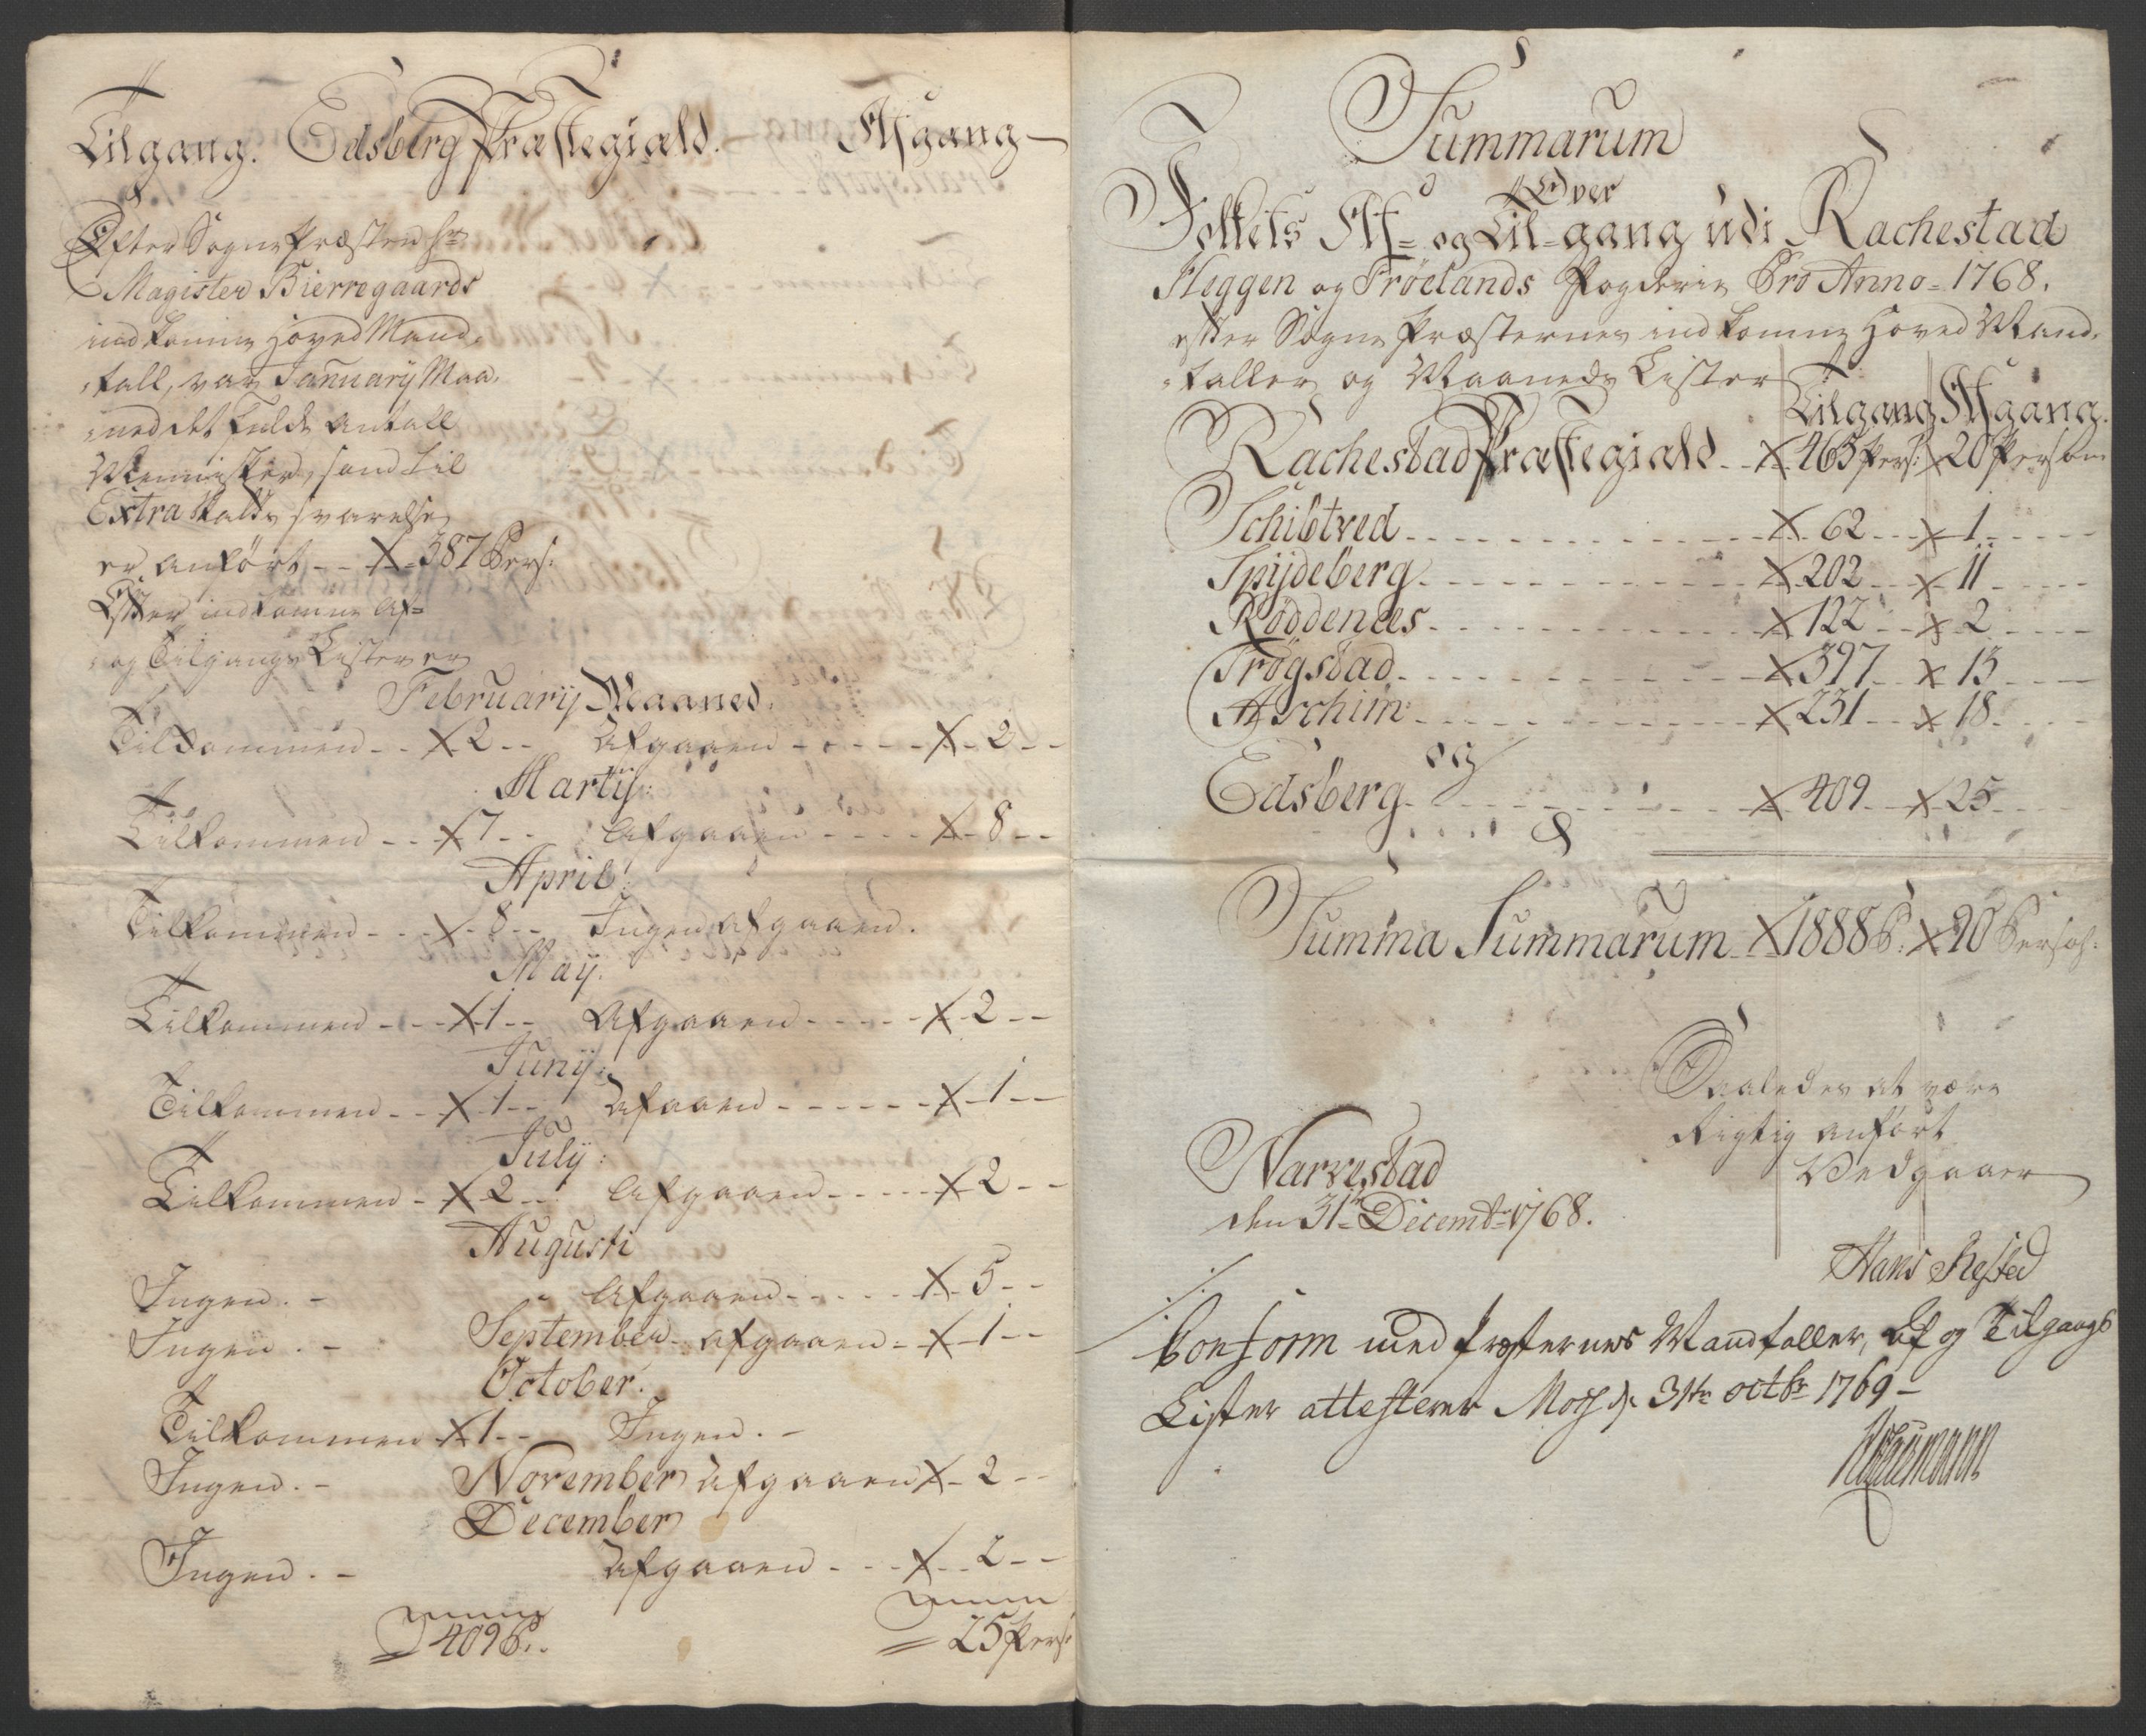 Tilgang. Edsberg Præstegiæld. Afgang
Efter Sogne Præsten Hr.
Magister Bierregaards
indkomne Hoved Mand-
-tall, var Januarij Maa-
-ned det fulde Antall
Mennisker, som til
Extra Skatts svarelse
er anført -- X 387 Pers:
Efter indkomne Af-
-og Tilgangs Lister er
Februarij Maaned.
Tilkommen -- X 2 -- Afgaaen ----- X 2 --
Martij:
Tilkommen -- X 7 -- Afgaaen ---- X 8 --
April:
Tilkommen -- X 8 -- Ingen afgaaen.
Maij.
Tilkommen --- X 1 -- Afgaaen ----- X 2 --
Junij:
Tilkommen -- X 1 -- Afgaaen ------ X 1 --
Julij:
Tilkommen - X 2 -- Afgaaen ----- X 2 --
Augusti
Ingen. - Afgaaen ----- X 5 --
Ingen. - September afgaaen - X 1 --
October.
Tilkommen X 1 -- Ingen. -
Ingen. - November Afgaaen X 2 --
December
Ingen. - Afgaaen --- X 2 --
409 P. 25 Pers:
Summarum
Over
Folkets Af- og Til-gang udi Rachestad
Heggen og Frölands Fogderie Pro Anno 1768.
efter Sogne Præsternes indkomne Hoved Mand-
-taller og Maaneds Lister
Tilgang Afgang.
Rachestad Præstegiæld -- X 465 Pers: X 20 Person
Schibtved --- X 62 --- X 1 ---
Spijdeberg --- X 202 --- X 11 ---
Röddenæs --- X 122 --- X 2 ---
Trögstad --- X 397 --- X 13 ---
Aschim --- X 231 --- X 18 ---
og
Edsberg --- X 409 --- X 25 ---
Summa Summarum X 1888 P. X 90 Persoh:
Saaledes at være
Rigtig anført
Vedgaaer
Narvestad
den 31te Decembr 1768.
Hans
Conform med Præsternes Mandtaller, Af og Tilgangs
Lister attesterer Moss d. 31te octbr 1769 -